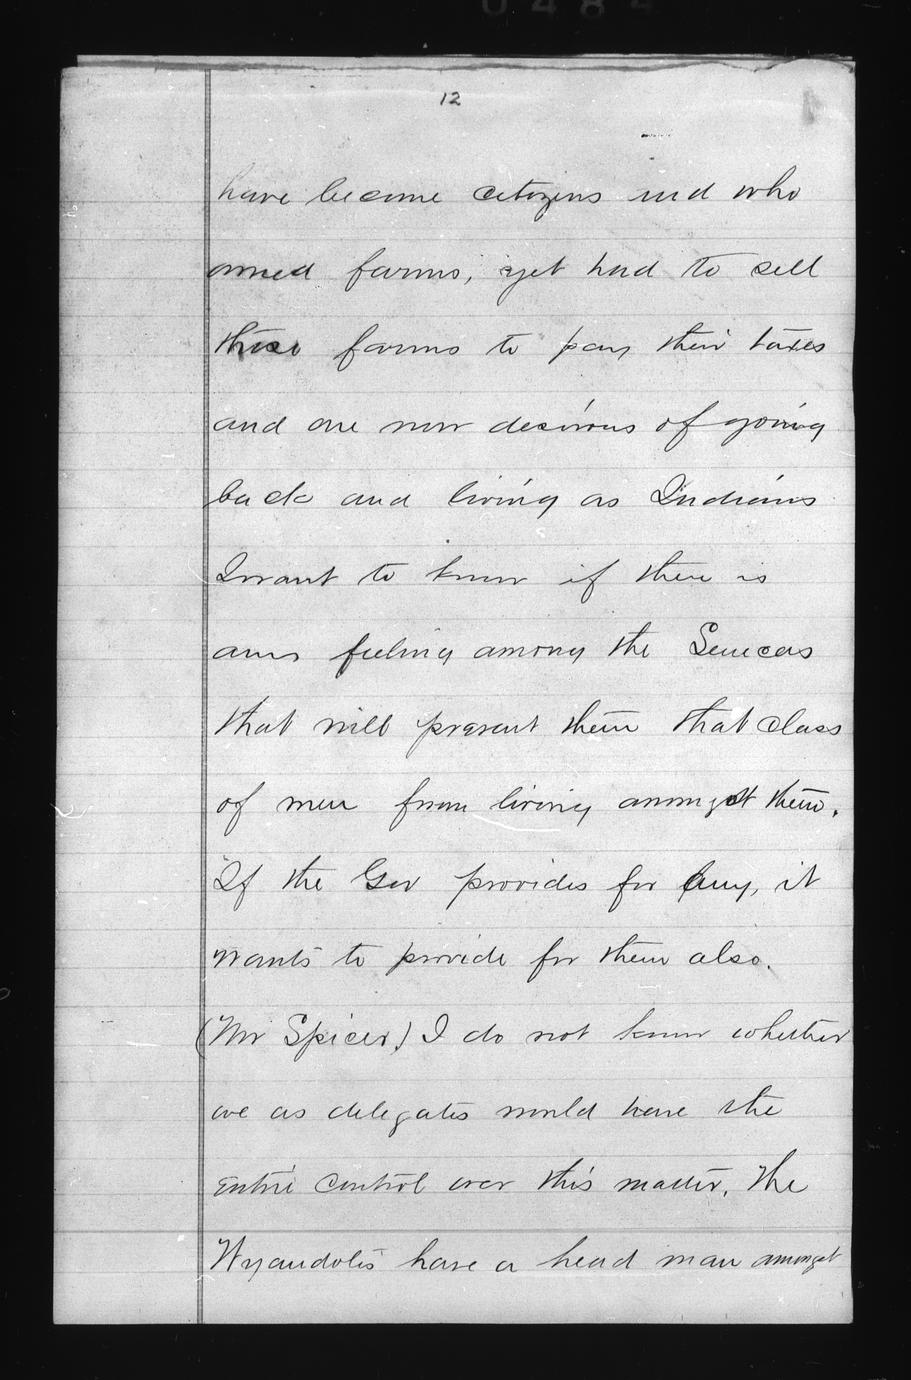 0484
12
have become citizens and who
owned farms, yet had to sell
these farms to pay their taxes
and are now desirous of going
back and living as Indians
I want to know if there is
any feeling among the Senecas
that will prevent them that class
of men from living amongst them.
If the Gov provides for any, it
wants to provide for them also.
(Mr Spicer) I do not know whether
we as delegates would have the
entire control over this matter. The
Wyandotts have a head man amongst